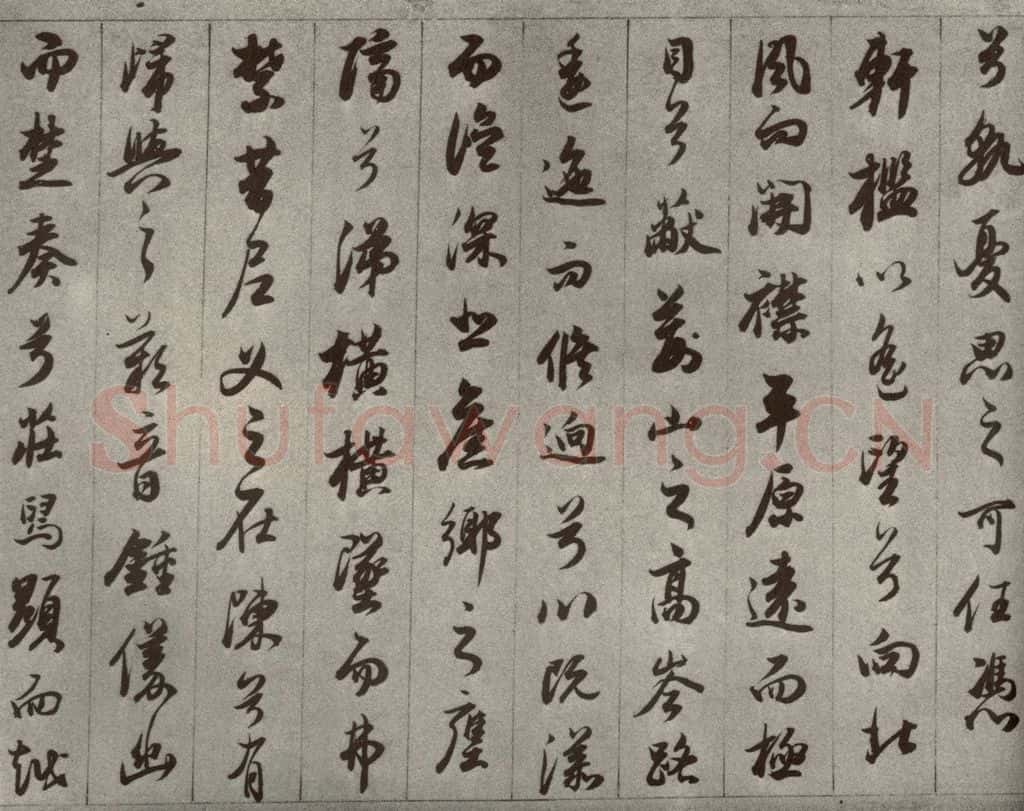 兮孰憂思之可任憑
軒檻以遙望兮向北
風而開襟平原遠而極
目兮蔽荊山之高岑路
逶迤而脩迥兮川既漾
而濟深悲舊鄉之壅
隔兮涕橫橫墜而弗
禁昔尼父之在陳兮有
歸與之歎音鍾儀幽
而楚奏兮莊舄顯而越
Shufawang.CN